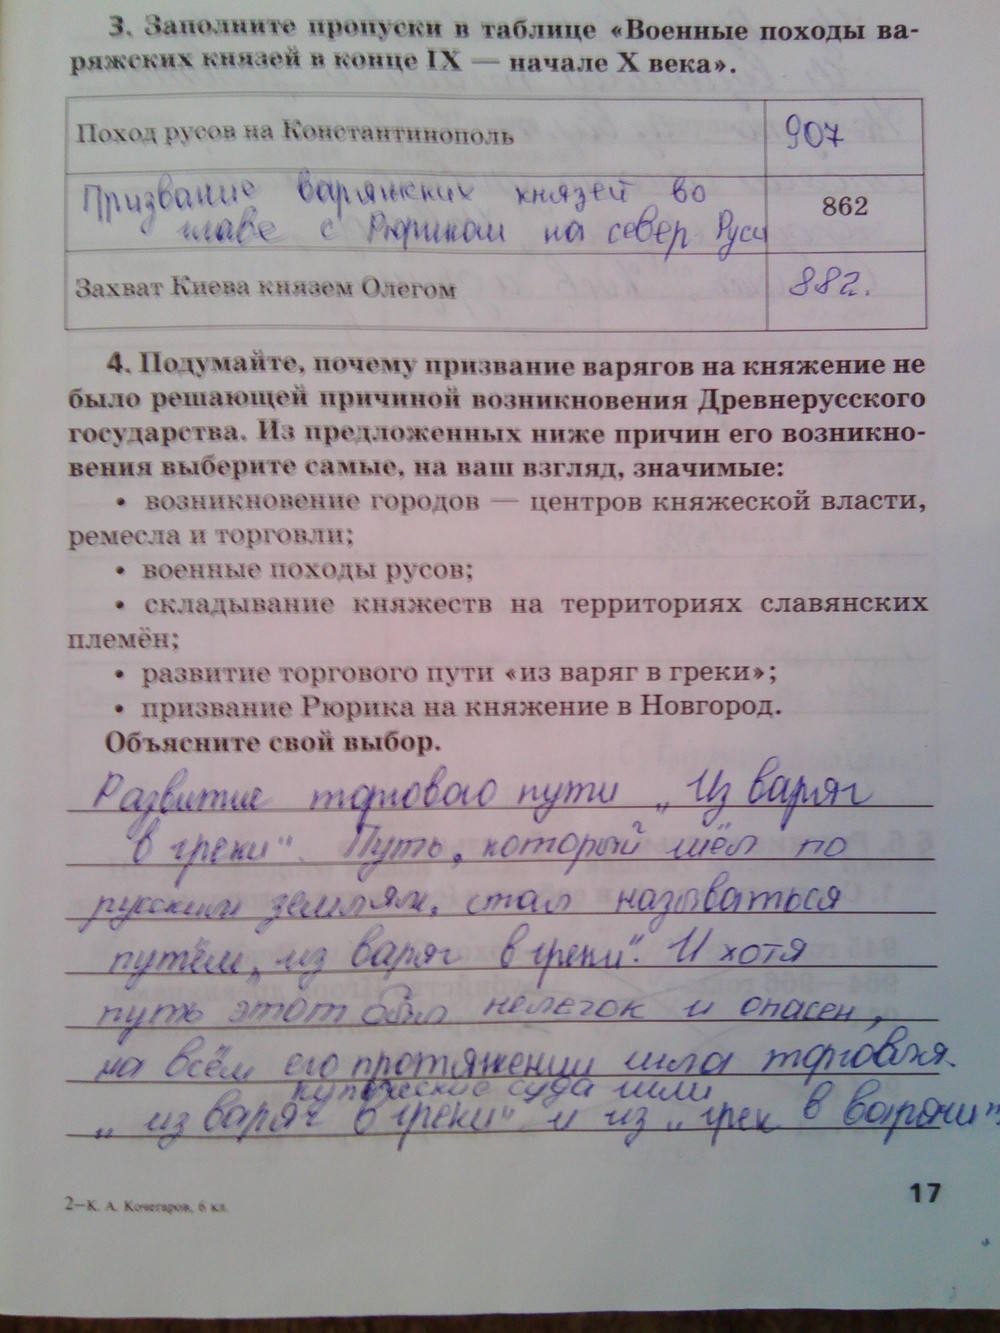 3. Заполните пропуски в таблице «Военные походы ва-
ряжских князей в конце IX — начале X века».
Поход русов на Константинополь 907
Призвание варяжских князей во
главе с Рюриком на север Руси 862
Захват Киева князем Олегом 882.
4. Подумайте, почему призвание варягов на княжение не
было решающей причиной возникновения Древнерусского
государства. Из предложенных ниже причин его возникно-
вения выберите самые, на ваш взгляд, значимые:
• возникновение городов — центров княжеской власти,
ремесла и торговли;
• военные походы русов;
• складывание княжеств на территориях славянских
племён;
• развитие торгового пути «из варяг в греки»;
• призвание Рюрика на княжение в Новгород.
Объясните свой выбор.
Развитие торгового пути „Из варяг
в греки". Путь, который шёл по
русским землям, стал называться
путём „из варяг в греки". И хотя
путь этот был нелегок и опасен,
на всём его протяжении шла торговля.
купеческие суда шли
„из варяг в греки" и из „грек в варяги"
2—К. А. Кочегаров, 6 кл.
17